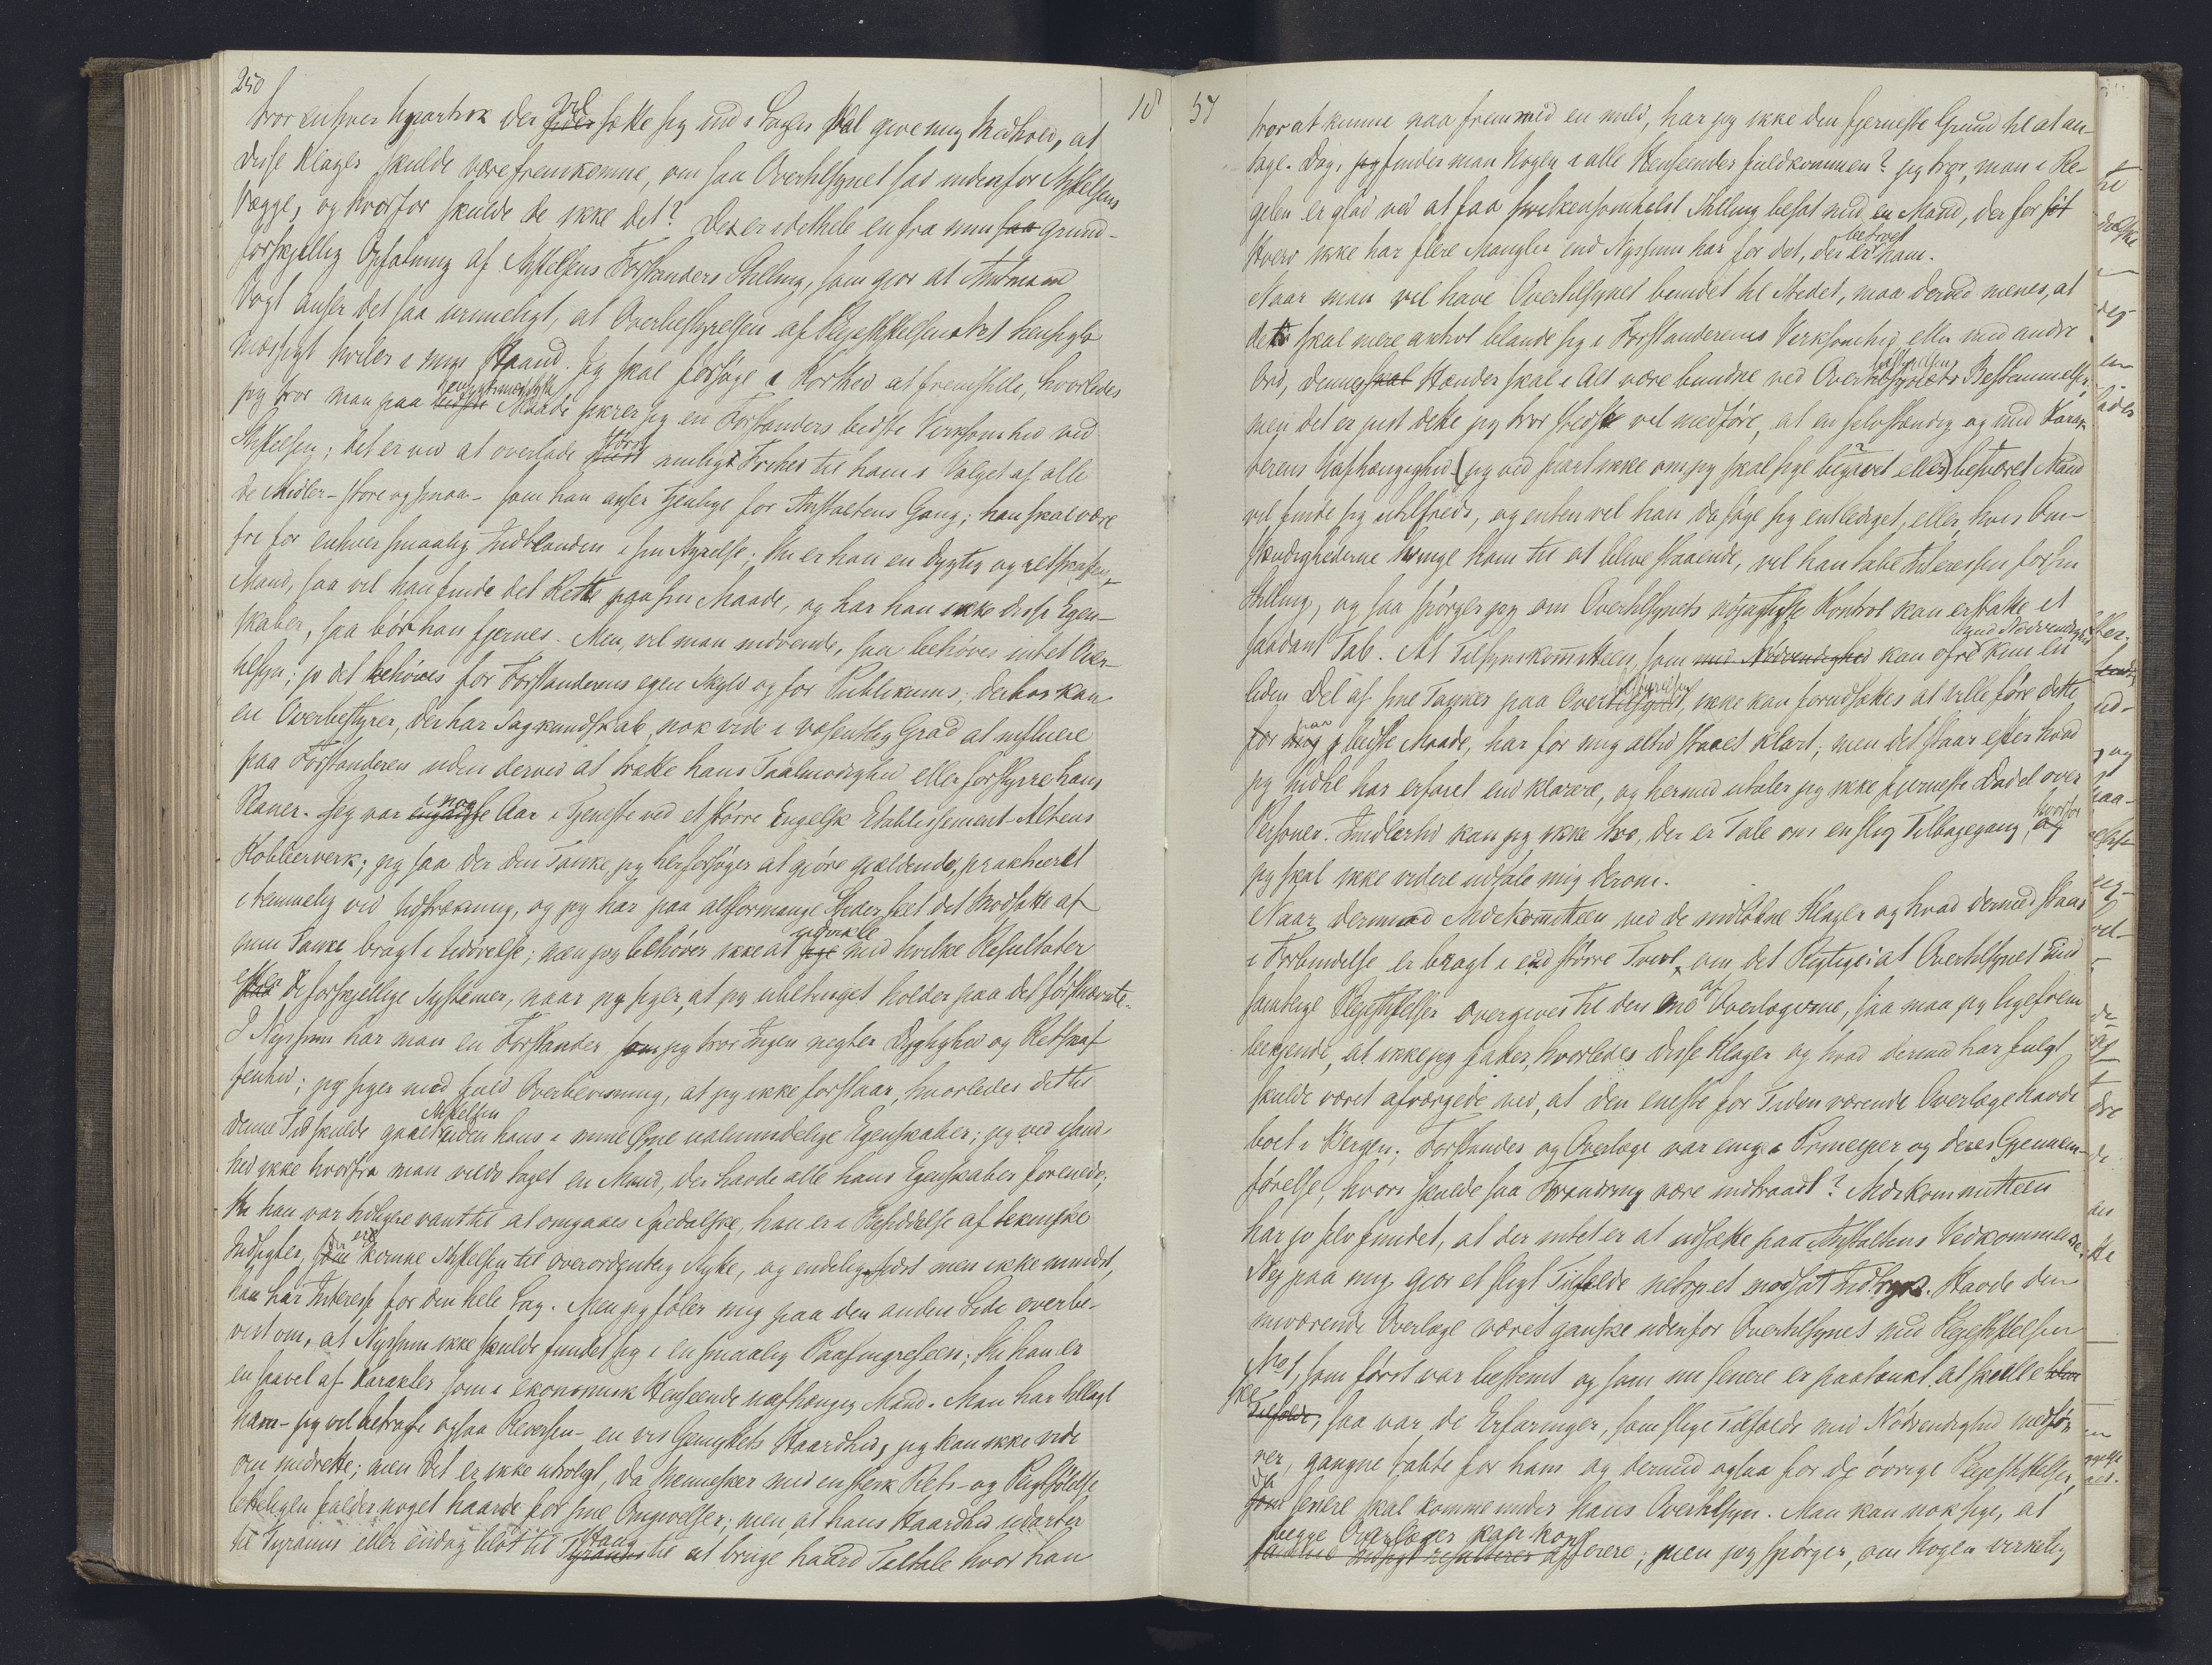 250
tror enhver upartisk der vil sætte sig ind i Sagen skal give mig Medhold, at
disse Klager skulde være fremkomne, om saa Overtilsynet sad indenfor Stiftelsens
Vægge, og hvorfor skulde de ikke det? Det er idethele en fra min saa grund-
forskjellig Opfatning af Stiftelsens Forstanders Stilling, som gjør at Amtmand
Vogt anser det saa urimeligt, at Overbestyrelsen af Plejestiftelsen hensigts-
mæssigt hviler i min Haand. Jeg skal forsøge i Korthed at fremstille, hvorledes
jeg tror man paa bedste hensigtsmæssigste Maade sikrer sig en Forstanders bedste Virksomhed ved
Stiftelsen; det er ved at overlade størst muligst Frihed til ham i Valget af alle
de Midler - store og smaa - som han anser tjenlige for Anstaltens Gang; han skal være
fri for enhver smaalig Indblanden i sin Styrelse. Nu er han en dygtig og retskaffen
Mand, saa vil han finde det Rette paa sin Maade, og har han ikke disse Egen-
skaber, saa bör han fjernes. Men, vil man indvende, saa behöves intet Over-
tilsyn; jo det behöves for Forstanderens egen Skyld og for Publikums; derhos kan
en Overbestyrer, der har Sagkundskab, nok vide i væsentlig Grad at influere
paa Forstanderen uden derved at trætte hans Taalmodighed eller forstyrre hans
Planer. Jeg var nogle Aar i Tjeneste ved et större Engelsk Etablissement - Altens
Kobberverk; jeg saa der den Tanke, jeg her forsöger at gjöre gjældende, praktiseret
i temmelig vid Udstrækning, og jeg har paa altformange Steder seet det Modsatte af
min Tanke bragt i Udövelse; men jeg behöver ikke at sige udvikle med hvilke Resultater
efter de forskjellige Systemer, naar jeg siger, at jeg ubetinget holder paa det förstnævnte.
I Nyssum har man en Forstander som jeg tror Ingen negter Dygtighed og Retskaf-
fenhed; jeg siger med fuld Overbevisning, at jeg ikke forstaar, hvorledes det til
denne Tid skulde gaaet Stiftelsen uden hans i mine Öjne ualmindelige Egenskaber; jeg ved i Sand-
hed ikke hvorfra man vilde taget en Mand, der havde alle hans Egenskaber forenede;
thi han var tidligere vant til at omgaaes Spedalske, han er i Besiddelse af tekniske
Indsigter, der ere komne Stiftelsen til overordentlig Nytte, og endelig sidst men ikke mindst,
han har Interesse for den hele Sag. Men jeg föler mig paa den anden Side overbe-
vist om, at Nyssum ikke skulde fundet sig i en smaalig Paafingreseen; thi han er
en saavel af Karakter som i ekonomisk Henseende uafhængig Mand. Man har tillagt
ham - jeg vil betragte ogsaa Reversen - en vis Gemyttets Haardhed; jeg kan ikke vide
om med rette; men det er ikke utroligt, da Mennesker med en sterk Rets- og Pligtfölelse
letteligen falder noget haarde for sine Omgivelser; men at hans Haardhed udarter
til Tyranni eller endog blot til Trang til at bruge haard Tiltale hvor han
18
54
tror at kunne naa frem med en mild, har jeg ikke den fjerneste Grund til at an-
tage. Dog, jeg finder man Nogen i alle Henseender fuldkommen? jeg tror, man i Re-
gelen er glad ved at faa hvilkensomhelst Stilling besat med en Mand, der for sit
Hverv ikke har flere Mangler end Nyssum har for det, der er betroet ham.
Naar man vil have Overtilsynet bundet til Stedet, maa derved menes, at
dette skal mere aktivt blande sig i Forstanderens Virksomhed eller med andre
Ord, dennes skal Hænder skal i Alt være bundne ved Overbestyrelsens Bestemmelser,
men det er just dette jeg tror sidst vil medføre, at en selvstændig og med Karak-
terens Uafhængighed (jeg ved snart ikke om jeg skal sige begavet eller) besværet Mand
vil finde sig utilfreds, og enten vil han da söge sig entlediget, eller hvis Om-
stændighederne tvinge ham til at blive staaende, vil han tabe Interessen for sin
Stilling, og saa spörger jeg om Overtilsynets nöjagtigste Kontrol kan erstatte et
saadant Tab. At Tilsynskom̄itteen, som med Nödvendighed kan ofre kun en
liden Del af sine Tanker paa Overbestyrelsen, ikke kan forudsættes at ville före dette
paa bedste Maade, har for mig altid staaet klart; men det staar efter hvad
jeg hidtil har erfaret end klarere, og hermed udtaler jeg ikke fjerneste Dadel over
Personer. Imidlertid kan jeg ikke tro, der er Tale om en slig Tilbagegang, hvorfor
jeg skal ikke videre udtale mig derom.
Naar dermed Medekomitteen ved de indløbne Klager og hvad dermed staar
i Forbindelse er bragt i end större Tvivl, om det Rigtige i at Overtilsynet med
samtlige Plejestiftelser overgives til den ene af Overlægerne, saa maa jeg ligefrem
bekjende, at ikke jeg fatter, hvorledes disse Klager og hvad dermed har fulgt
skulde været afværgede ved, at den eneste for Tiden værende Overlæge havde
boet i Bergen; Forstander og Overlæge var enige i Principer og deres Gjennem-
förelse, hvori skulde saa Forandring være indtraadt? Medekommitteen
har jo selv fundet, at der intet er at udsætte paa Anstaltens Vedkommende.
Nej paa mig gjör et sligt Tilfælde netop et modsat Indtryk. Havde den
nuværende Overlæge været ganske udenfor Overtilsynet med Plejestiftelsen
No 1, som först var bestemt og som nu senere er paatænkt at skulle blive
ske Tilfælde, saa var de Erfaringer, som slige Tilfælde med Nödvendighed medfö-
rer, gangne tabte for ham og dermed ogsaa for de övrige Plejestiftelser,
da senere skal komme under hans Overtilsyn. Man kan nok sige, at
begge Overlæger kan konferere; men jeg spörger, om Nogen virkelig